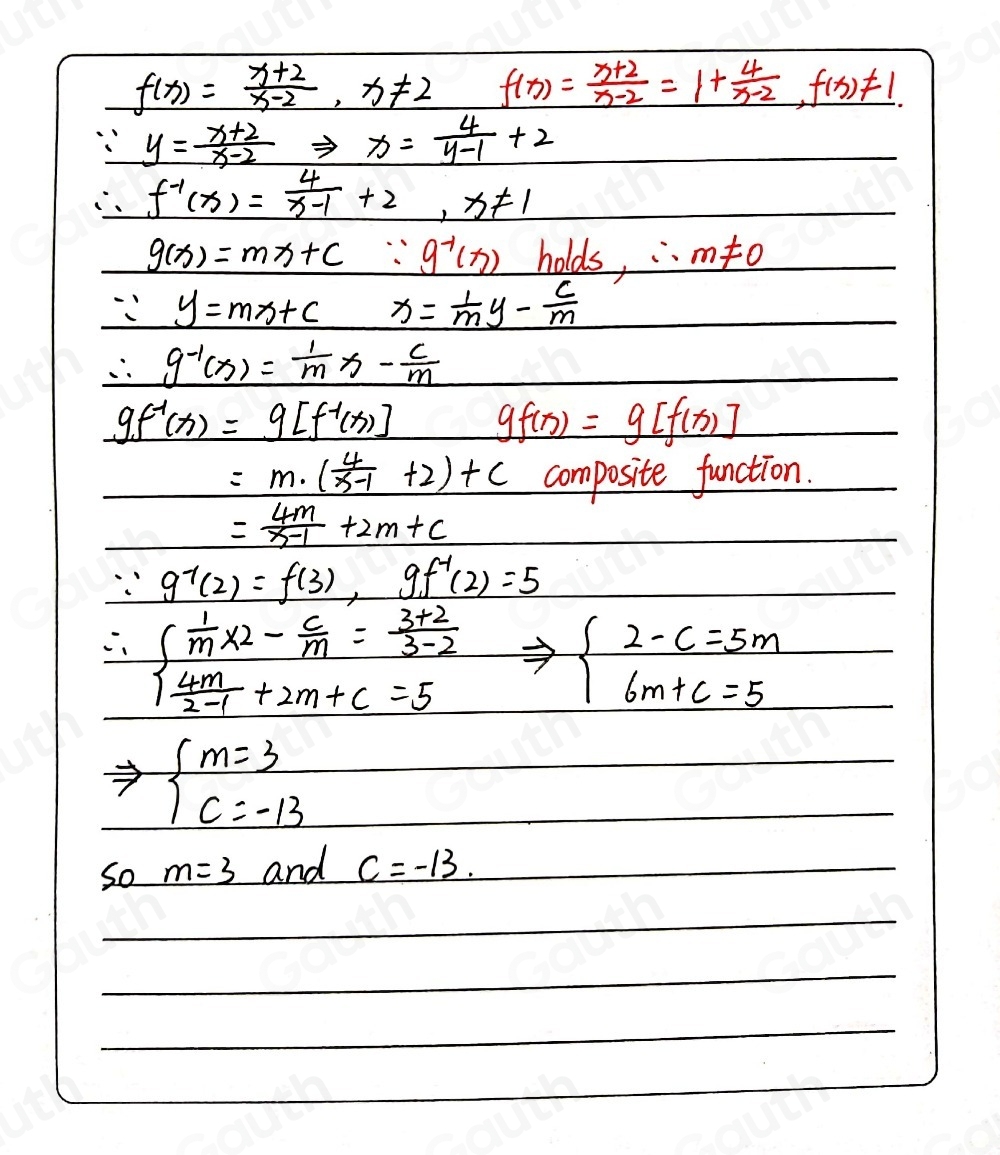 f(x) = \frac{x+2}{x-2}, x≠2 f(x) = \frac{x+2}{x-2} = 1+\frac{4}{x-2}, f(x)≠1.
∵ y = \frac{x+2}{x-2} ⇒ x = \frac{4}{y-1} + 2
∴ f⁻¹(x) = \frac{4}{x-1} + 2, x≠1
g(x) = mx+c ∵ g⁻¹(x) holds, ∴ m≠0
∵ y = mx+c x = \frac{1}{m}y - \frac{c}{m}
∴ g⁻¹(x) = \frac{1}{m}x - \frac{c}{m}
gf⁻¹(x) = g[f⁻¹(x)] gf(x) = g[f(x)]
= m·(\frac{4}{x-1} +2)+c composite function.
= \frac{4m}{x-1} +2m+c
∵ g⁻¹(2) = f(3), gf⁻¹(2) = 5
∴ { \frac{1}{m}×2 - \frac{c}{m} = \frac{3+2}{3-2} ⇒ { 2-c = 5m
\frac{4m}{2-1} +2m+c = 5 6m+c = 5
⇒ { m = 3
c = -13
so m=3 and c=-13.
Gauth